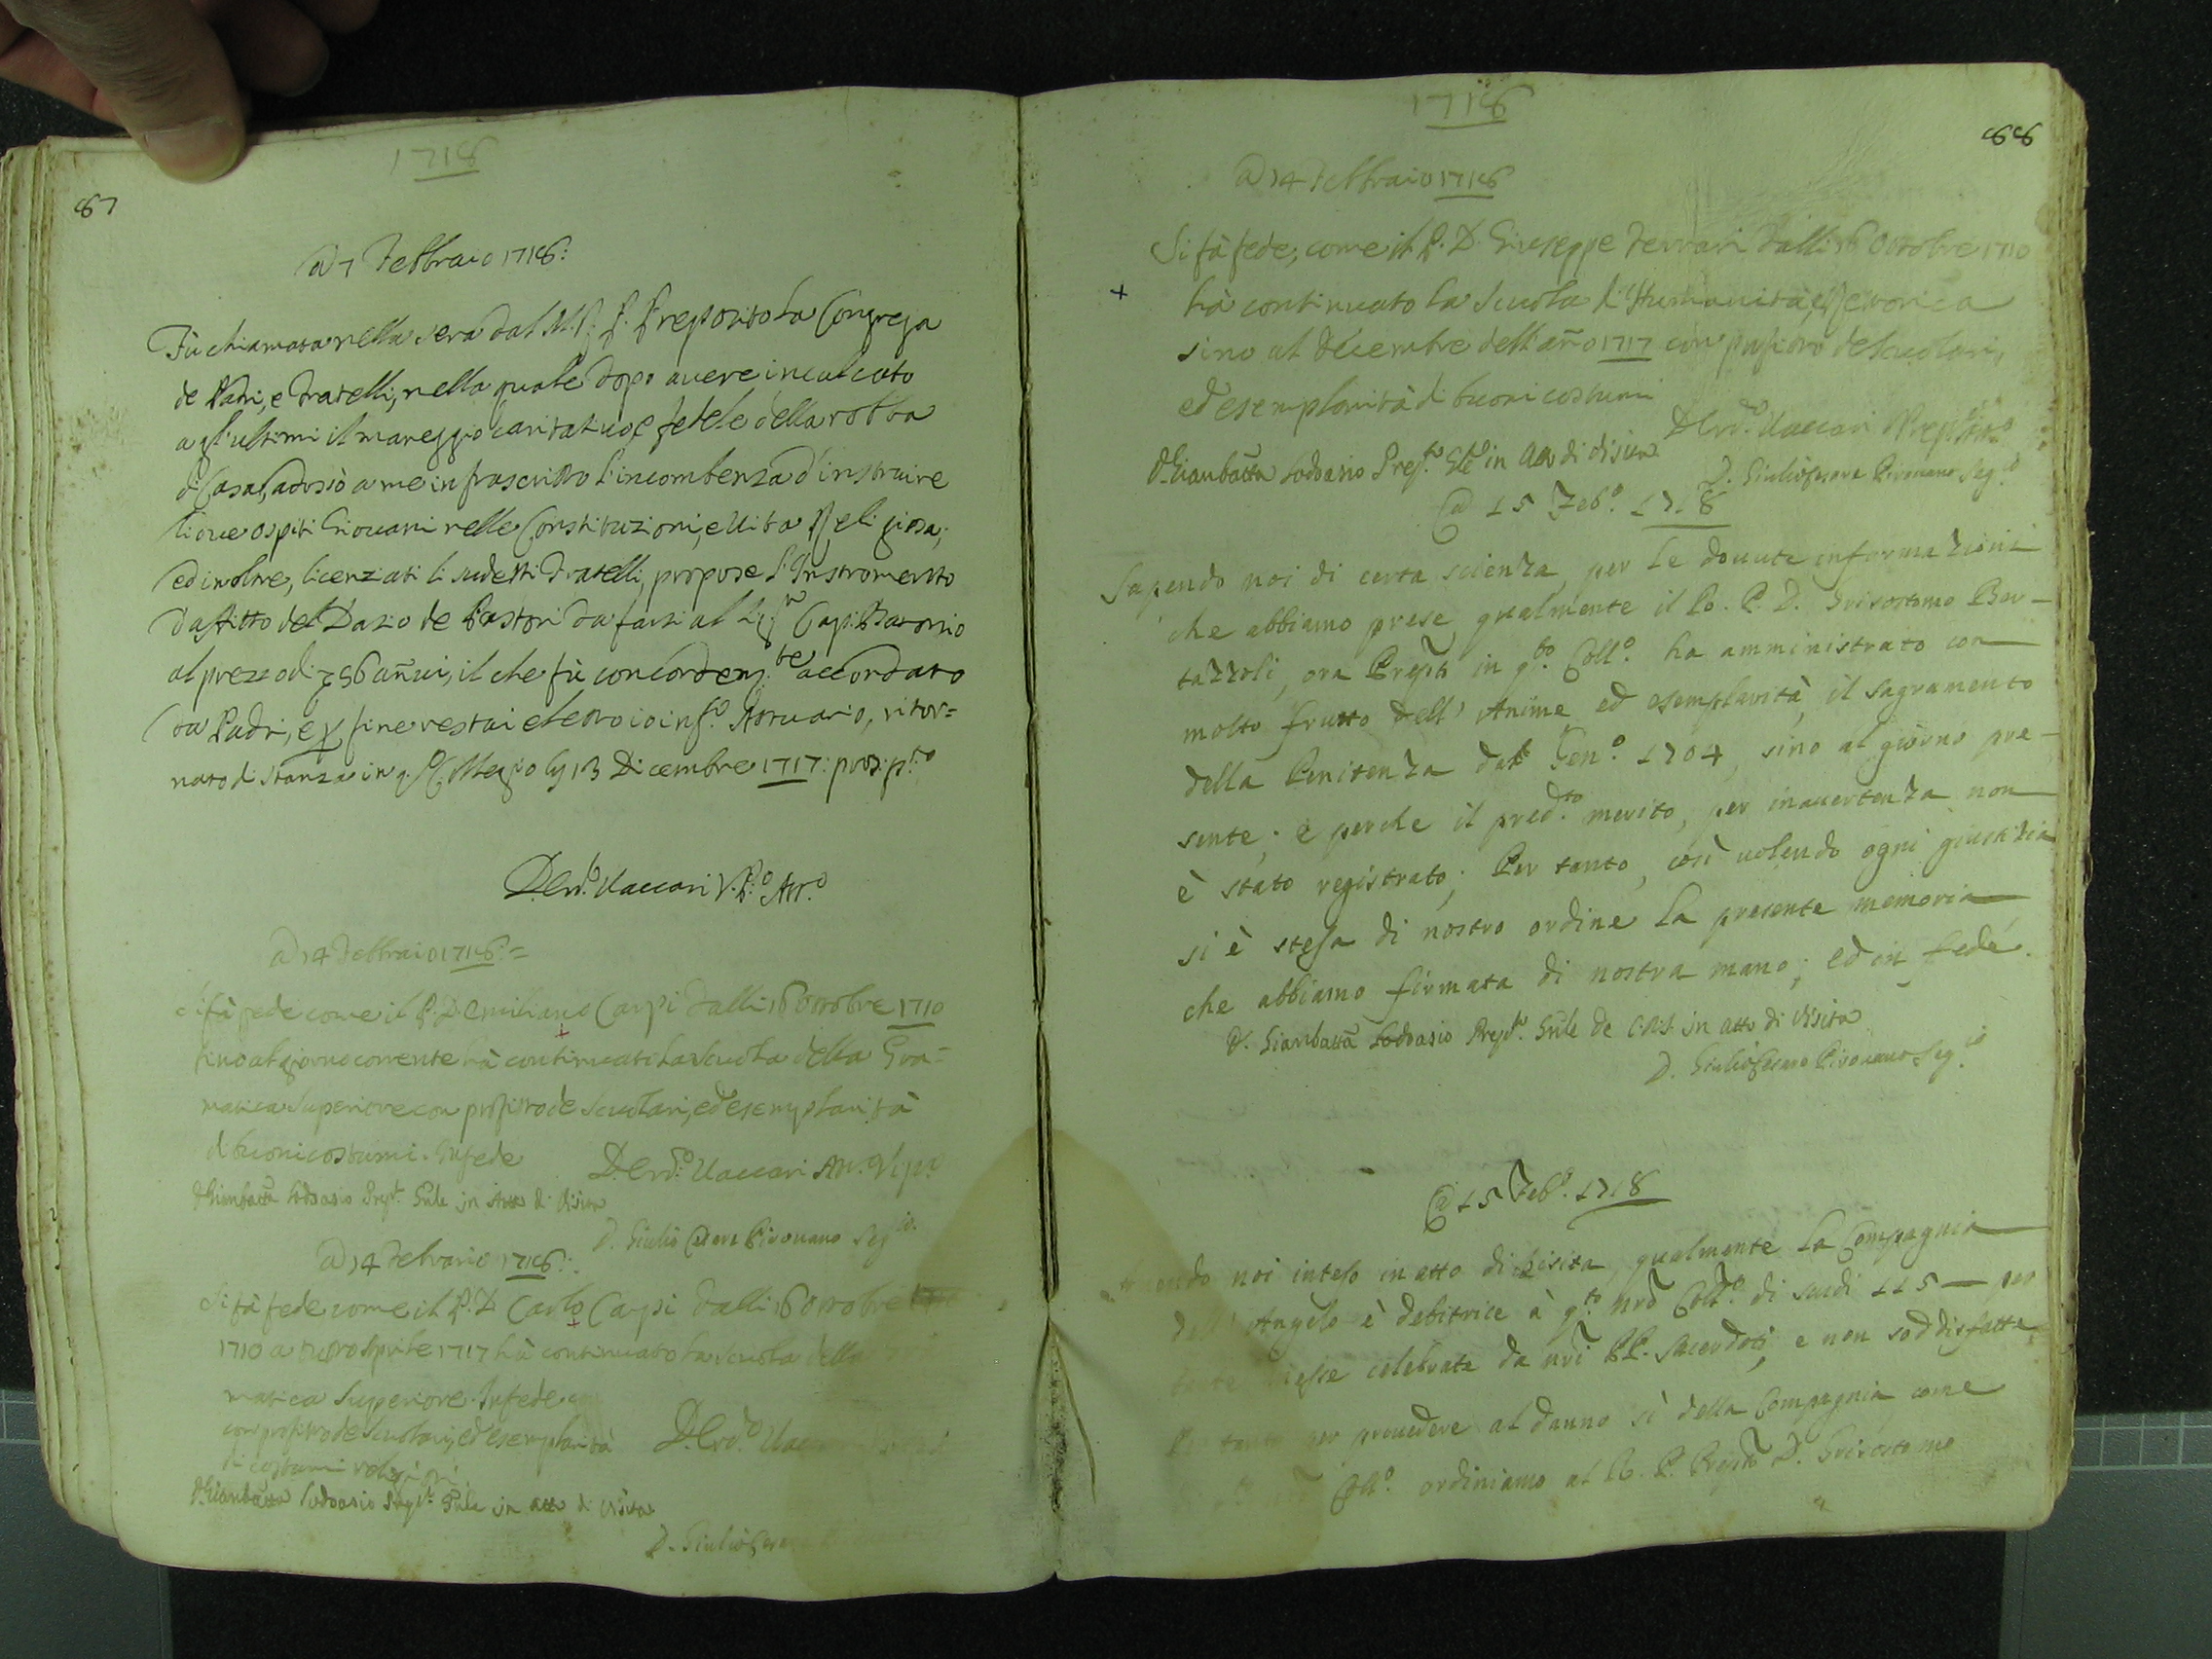 1718
87
A 7 Febbraio 1718:
Fù chiamata nella sera dal M. R. P. Preposito la Congrega
de Padri, e Fratelli, nella quale dopo avere inculcato
agl'ultimi il maneggio caritativo, e fedele della robba
di Casa, adossò a me infrascritto l'incombenza d'instruire
li due ospiti Giovani nelle Constituzioni, e Vita Religiosa;
ed inoltre, licenziati li sudetti Fratelli, propose l'Instromento
d'affitto del Dazio de Pastori da farsi al Sigr Cap.
al prezzo di 756 annui, il che fù concordemte accordato
da Padri, e per fine restai eletto io infro Attuario, ritor=
nato di stanza in q. li 13 Dicembre 1717: pross. p.to
D. Erd.o Vaccari V. P.o Att.o
A 14 Febbraio 1718:=
Si fà fede come il P. D. Emiliano Carpi dalli 16 Ottobre 1710
sino al giorno corrente hà continuato la scuola della Gra=
matica Superiore con profitto de Scuolari, ed esemplarità
di buoni costumi. In fede
D. Erd.o Vaccari
D. Giambatta Lodoasio Prepto Gnle in Atto di Visita
D. Giulio Cesare Pirovano Seg.rio
A 14 Febraio 1718:
Si fà fede come il P. D. Carlo Carpi dalli 16 Ottobre
1710 a tutto Aprile 1717 hà continuato la scuola della
matica Superiore. In fede
con profitto de Scuolari, ed esemplarità
di costumi religiosi
D. Erd.o
D. Giambatta Lodoasio Prepto Gnle in atto di Visita
D. Giulio Cesare
1718
88
A 14 Febbraio 1718
Si fà fede, come il P. D. Giuseppe Ferrari dalli 16 Ottobre 1710
+ hà continuato la Scuola d'Humanità, e Rettorica
sino al Decembre dell'año 1717 con profitto de Scuolari,
ed esemplarità di buoni costumi
D. Erd.o Vaccari
D. Giambatta Lodoasio Prep.to Gle in Atto di Visita
D. Giulio Cesare Pirovano Seg.rio
A 15 Feb.o 1718
Sapendo noi di certa scienza, per le dovute informazioni
che abbiamo prese qualmente il Ro. P. D. Grisostomo Ber-
tazzoli, ora Prepto in q.to Coll.o ha amministrato con
molto frutto dell'Anime ed esemplarità, il Sagramento
della Penitenza dal Gen.o 1704, sino al giorno pre-
sente; e perche il pred.to merito, per inavertenza non
è stato registrato; Per tanto, così volendo ogni giustizia
si è stesa di nostro ordine la presente memoria
che abbiamo firmata di nostra mano; ed in fede.
D. Giambatta Lodoasio Prep.to Gnle de C. R. S. in atto di Visita
D. Giulio Cesare Pirovano Seg.rio
A 15 Feb.o 1718
noi inteso in atto di Visita, qualmente la Compagnia
dell'Angelo è debitrice à q.to nro Coll.o di scudi 115 — per
tante Messe celebrate da nri RR. Sacerdoti, e non soddisfatte.
Per tanto per provedere al danno sì della Compagnia come
Coll.o ordiniamo al R. P. Prepto D. Grisostomo